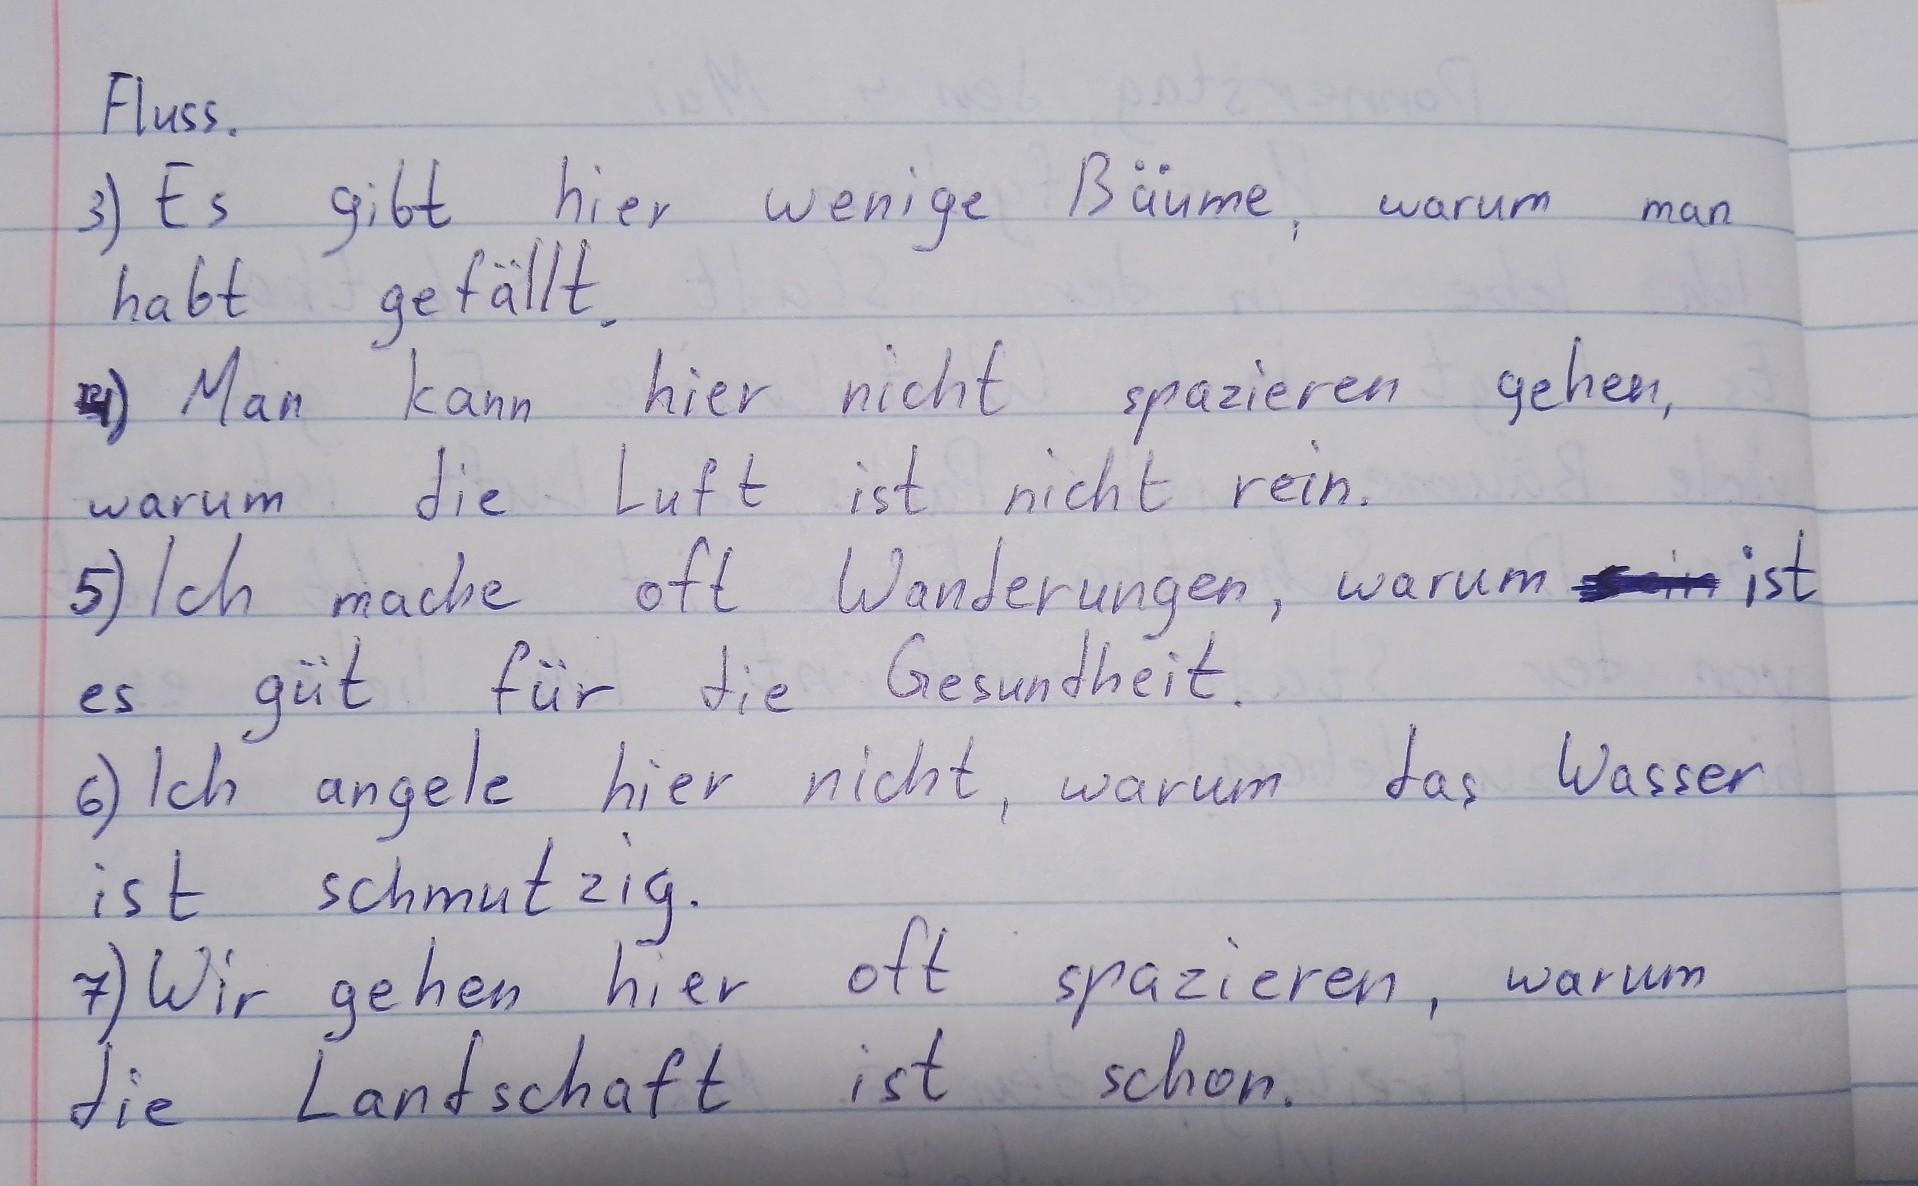 Fluss.
3) Es gibt hier wenige Bäume, warum man
habt gefällt.
4) Man kann hier nicht spazieren gehen,
warum die Luft ist nicht rein.
5) Ich mache oft Wanderungen, warum ist
es güt für die Gesundheit.
6) Ich angele hier nicht, warum das Wasser
ist schmutzig.
7) Wir gehen hier oft spazieren, warum
die Landschaft ist schon.